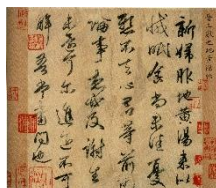 新婦服地黄湯来似
減眠食尚未佳憂
懸不去心君等前所
論事想必及謝生
未還何尔進退不可
解吾當書問也